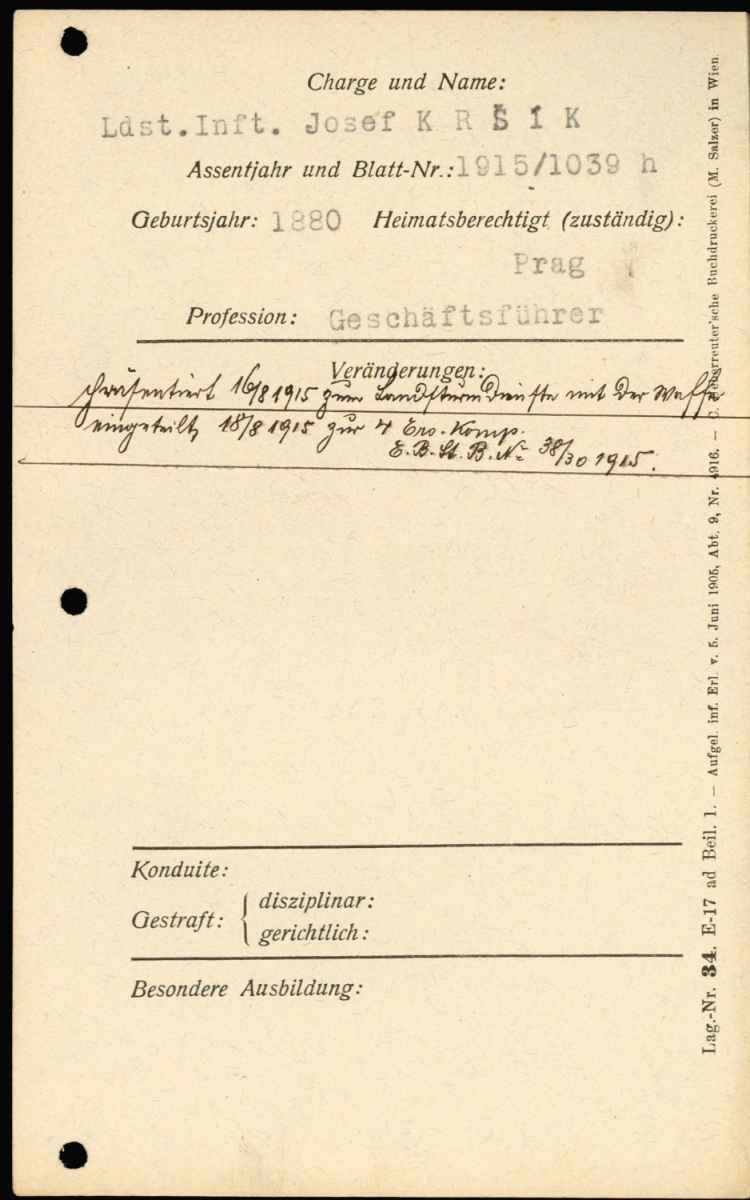 Charge und Name:
Ldst.Inft. Josef K R Š Í K
Assentjahr und Blatt-Nr.: 1915/1039 h
Geburtsjahr: 1880 Heimatsberechtigt (zuständig):
Prag
Profession: Geschäftsführer
Veränderungen:
Präsentiert 16/8 1915 zum Landsturmdienste mit der Waffe
eingeteilt 18/8 1915 zur 4 Ers. Komp.
E. B. St. B. No 38/30 1915.
Konduite:
Gestraft: { disziplinar:
gerichtlich:
Besondere Ausbildung:
Lag.-Nr. 34. E-17 ad Beil. 1. — Aufgel. inf. Erl. v. 5. Juni 1905, Abt. 9, Nr. 4916. — C. Ueberreuter'sche Buchdruckerei (M. Salzer) in Wien.